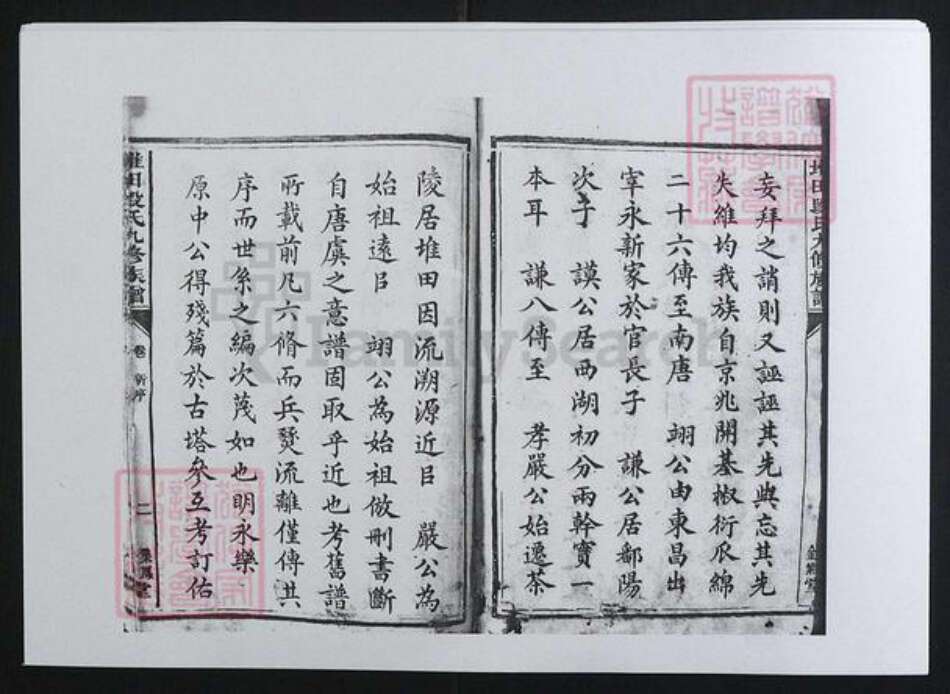 妄拜之誚則又誣誣其先與忘其先
失維均我族自京兆開基椒衍瓜綿
二十六傳至南唐　翊公由東昌出
宰永新家於官長子　謙公居鄱陽
次子　謨公居西湖初分兩幹實一
本耳　謙八傳至　孝嚴公始遷茶
陵居堆田因流溯源近㠯　嚴公為
始祖遠㠯　翊公為始祖倣刪書斷
自唐虞之意譜固取乎近也考舊譜
所載前凡六脩而兵燹流離僅傳其
序而世系之編次蔑如也明永樂
原中公得殘篇於古塔參互考訂佑
堆田段氏九修族譜
卷　新序
二
FamilySearch